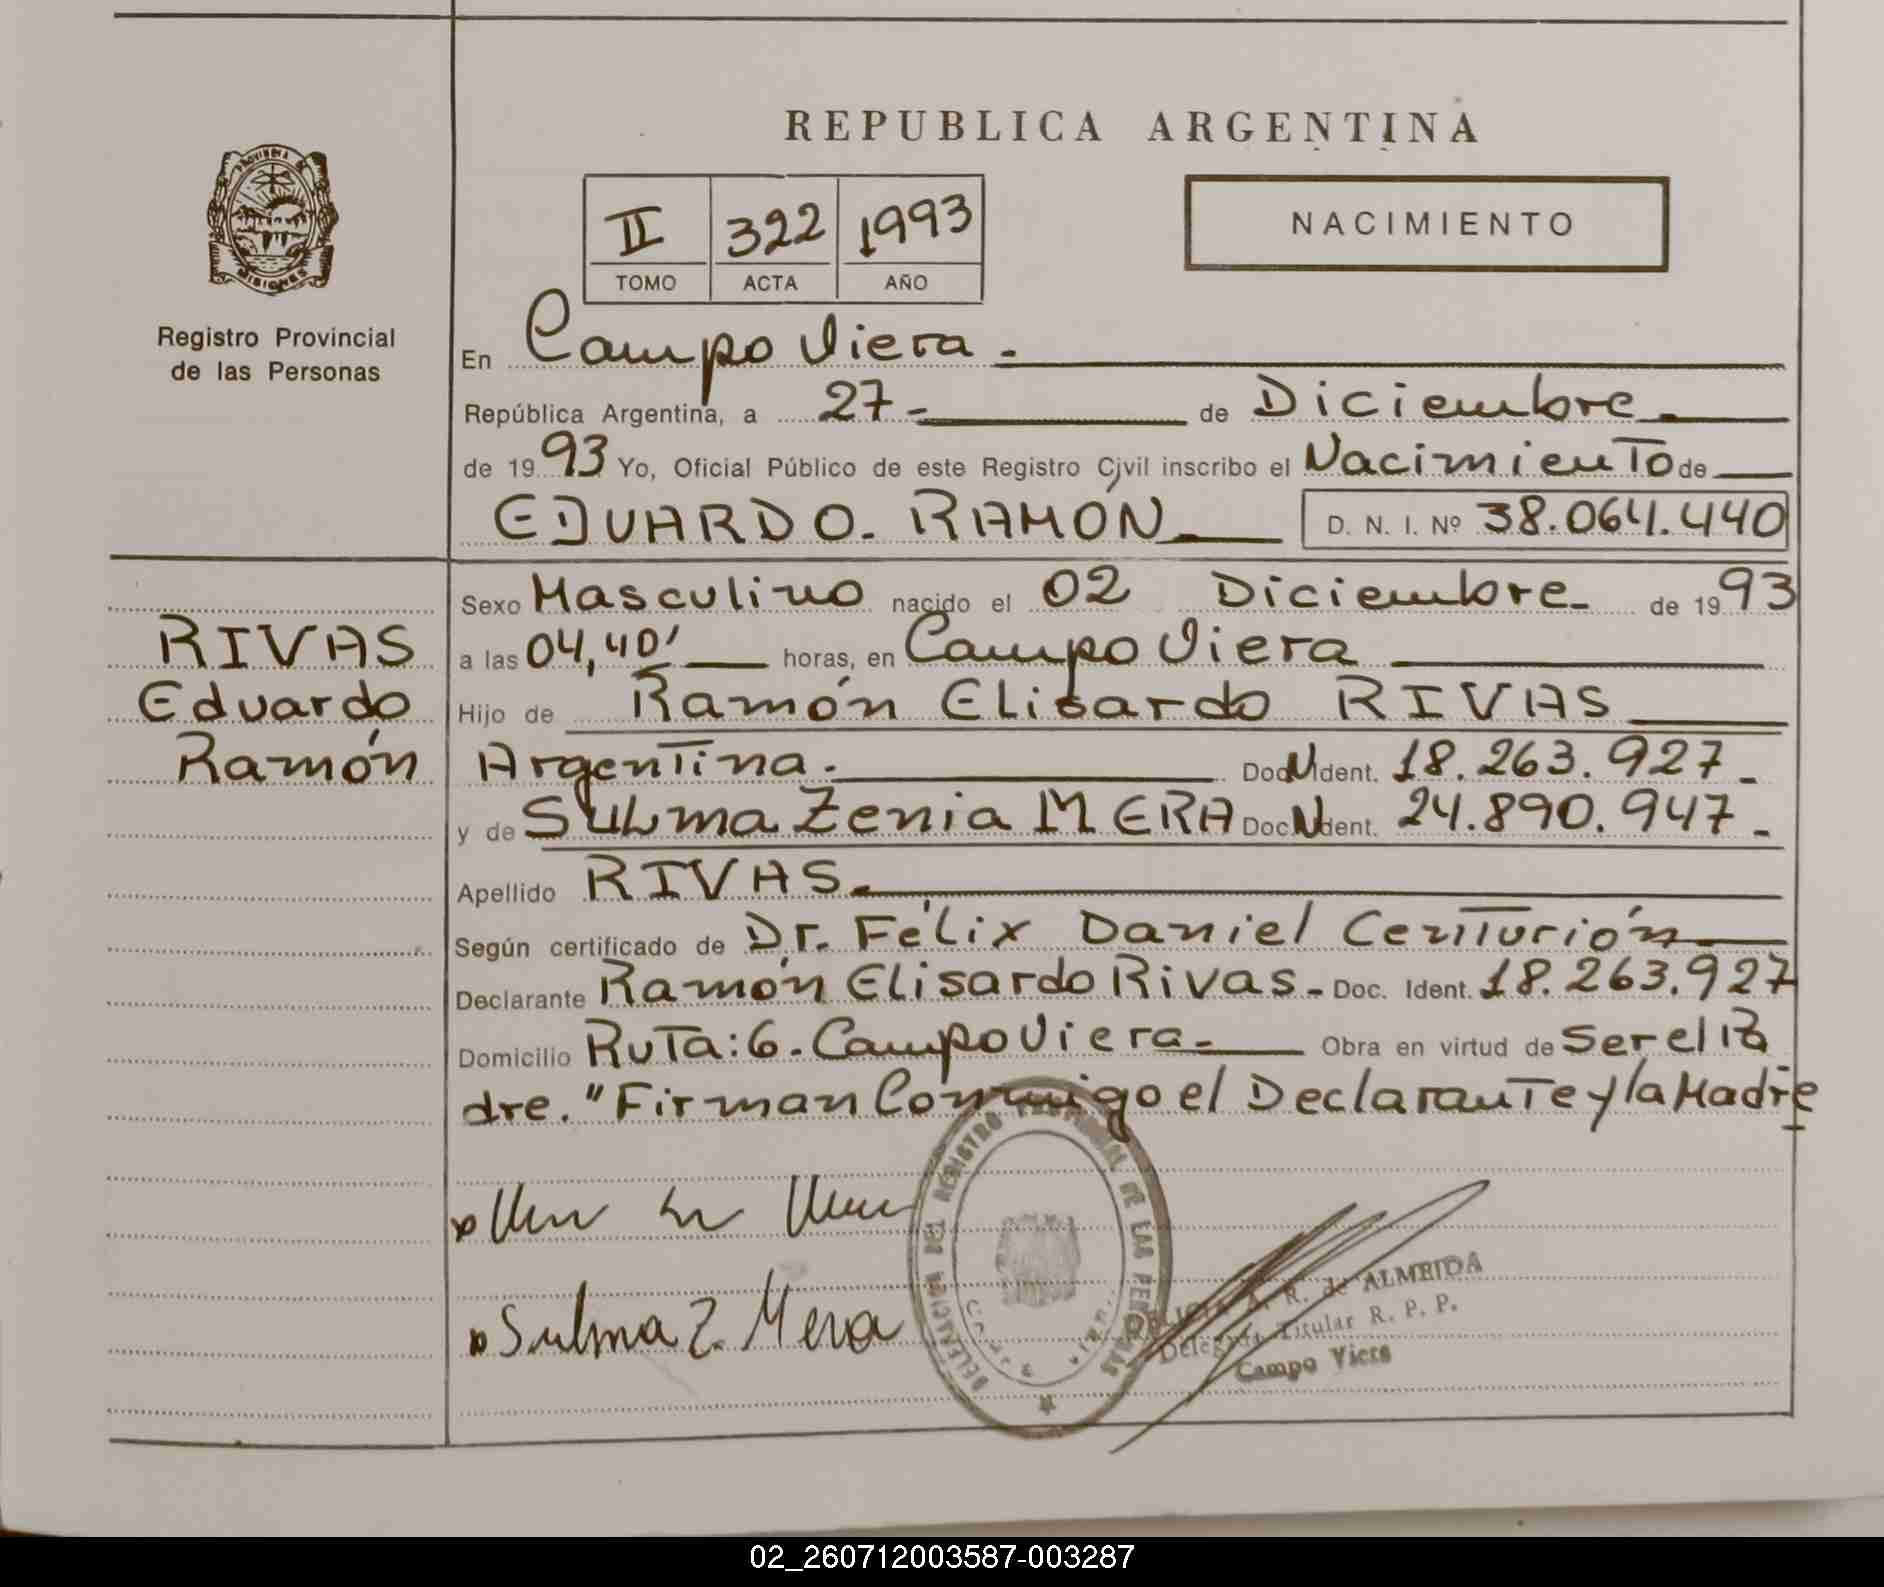 REPUBLICA ARGENTINA
II 322 1993
TOMO ACTA AÑO
NACIMIENTO
PROVINCIA DE
MISIONES
Registro Provincial
de las Personas
En Campo Viera.
República Argentina, a 27 de Diciembre
de 1993 Yo, Oficial Público de este Registro Civil inscribo el Nacimiento de
EDUARDO. RAMÓN D. N. I. Nº 38.064.440
RIVAS
Eduardo
Ramón
Sexo Masculino nacido el 02 Diciembre de 1993
a las 04,40' horas, en Campo Viera
Hijo de Ramón Elisardo RIVAS
Argentina. Doc Ident. 18.263.927
y de SULma Zenia MERA Doc Ident. 24.890.947
Apellido RIVAS.
Según certificado de Dr. Félix Daniel Centurión
Declarante Ramón Elisardo Rivas. Doc. Ident. 18.263.927
Domicilio Ruta: 6. Campo Viera. Obra en virtud de ser el Pa
dre. "Firman Conmigo el Declarante y la Madre
Sulma Z. Mera
DELEGACION DEL REGISTRO PROVINCIAL DE LAS PERSONAS
A. R. de ALMEIDA
Delegada Titular R. P. P.
Campo Viera
02_260712003587-003287